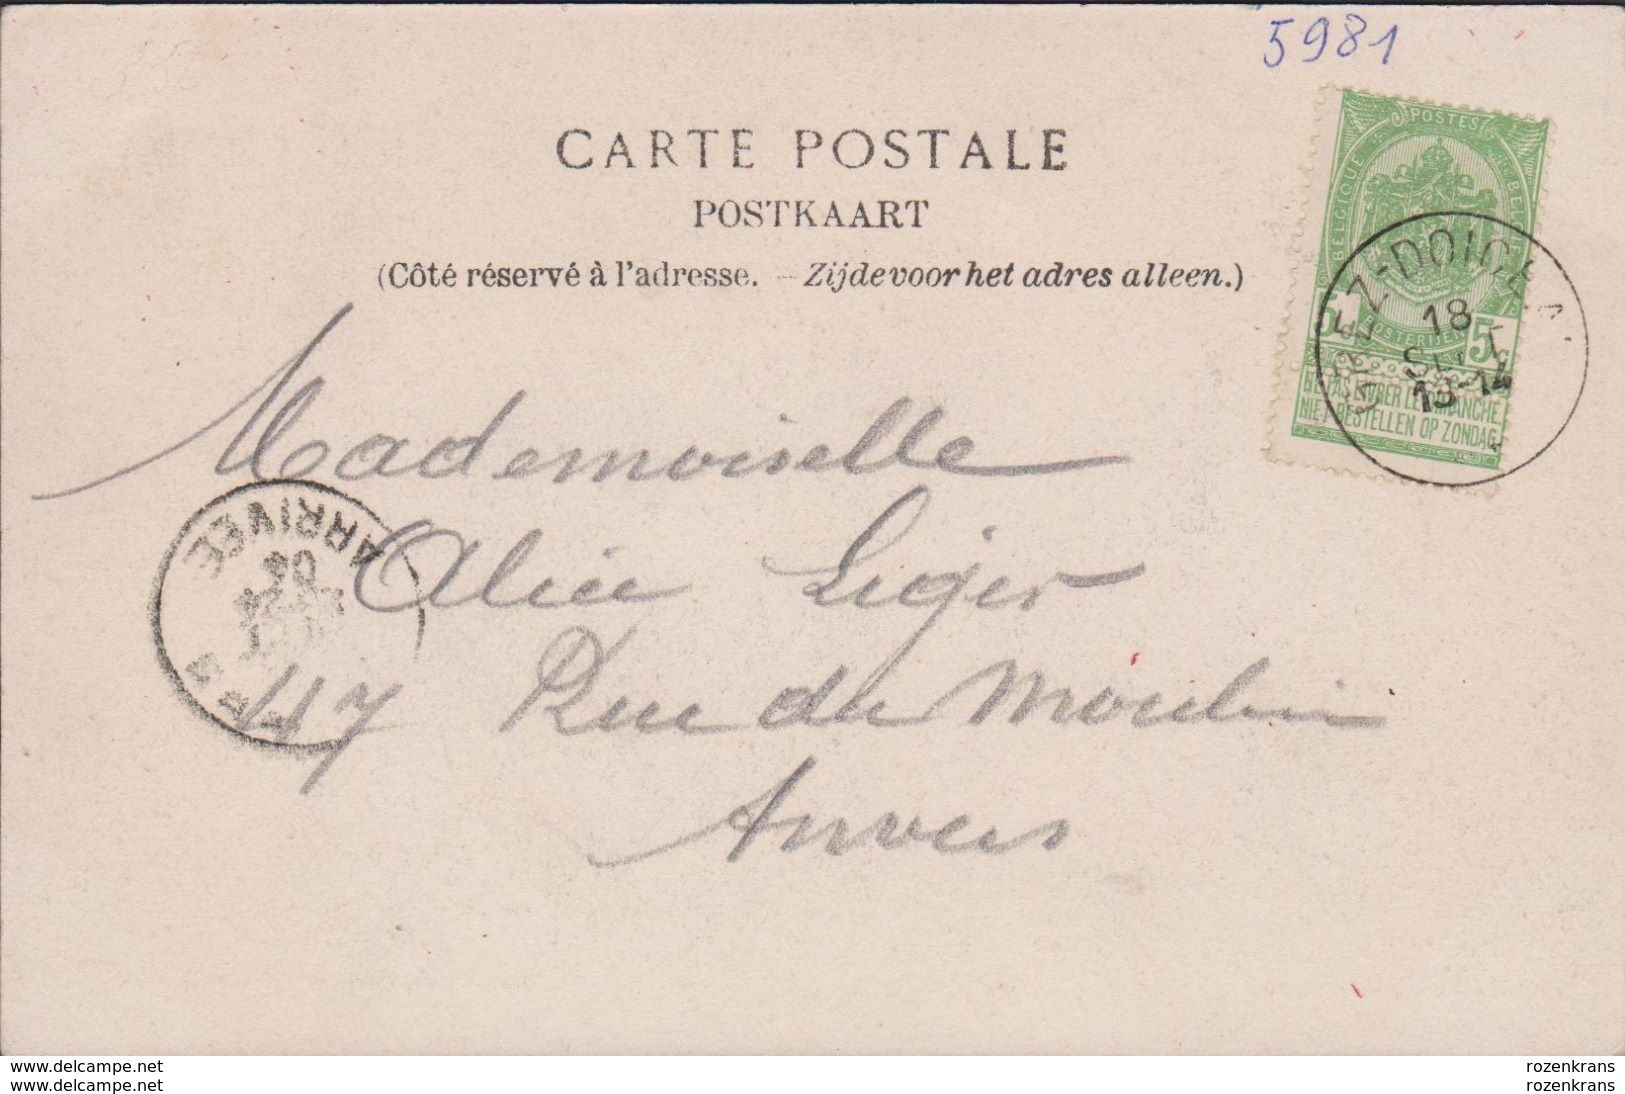 5981
CARTE POSTALE
POSTKAART
(Côté réservé à l'adresse. – Zijde voor het adres alleen.)
POSTES
BELGIQUE
BELGIË
POSTERIJEN
5 5c
NE PAS LIVRER LE DIMANCHE.
NIET BESTELLEN OP ZONDAG.
18
SEPT
13-14
Mademoiselle
Alice Leger
117 Rue du Moulin
Anvers
ARRIVÉE
04
delcampe.net
delcampe.net
rozenkrans
rozenkrans